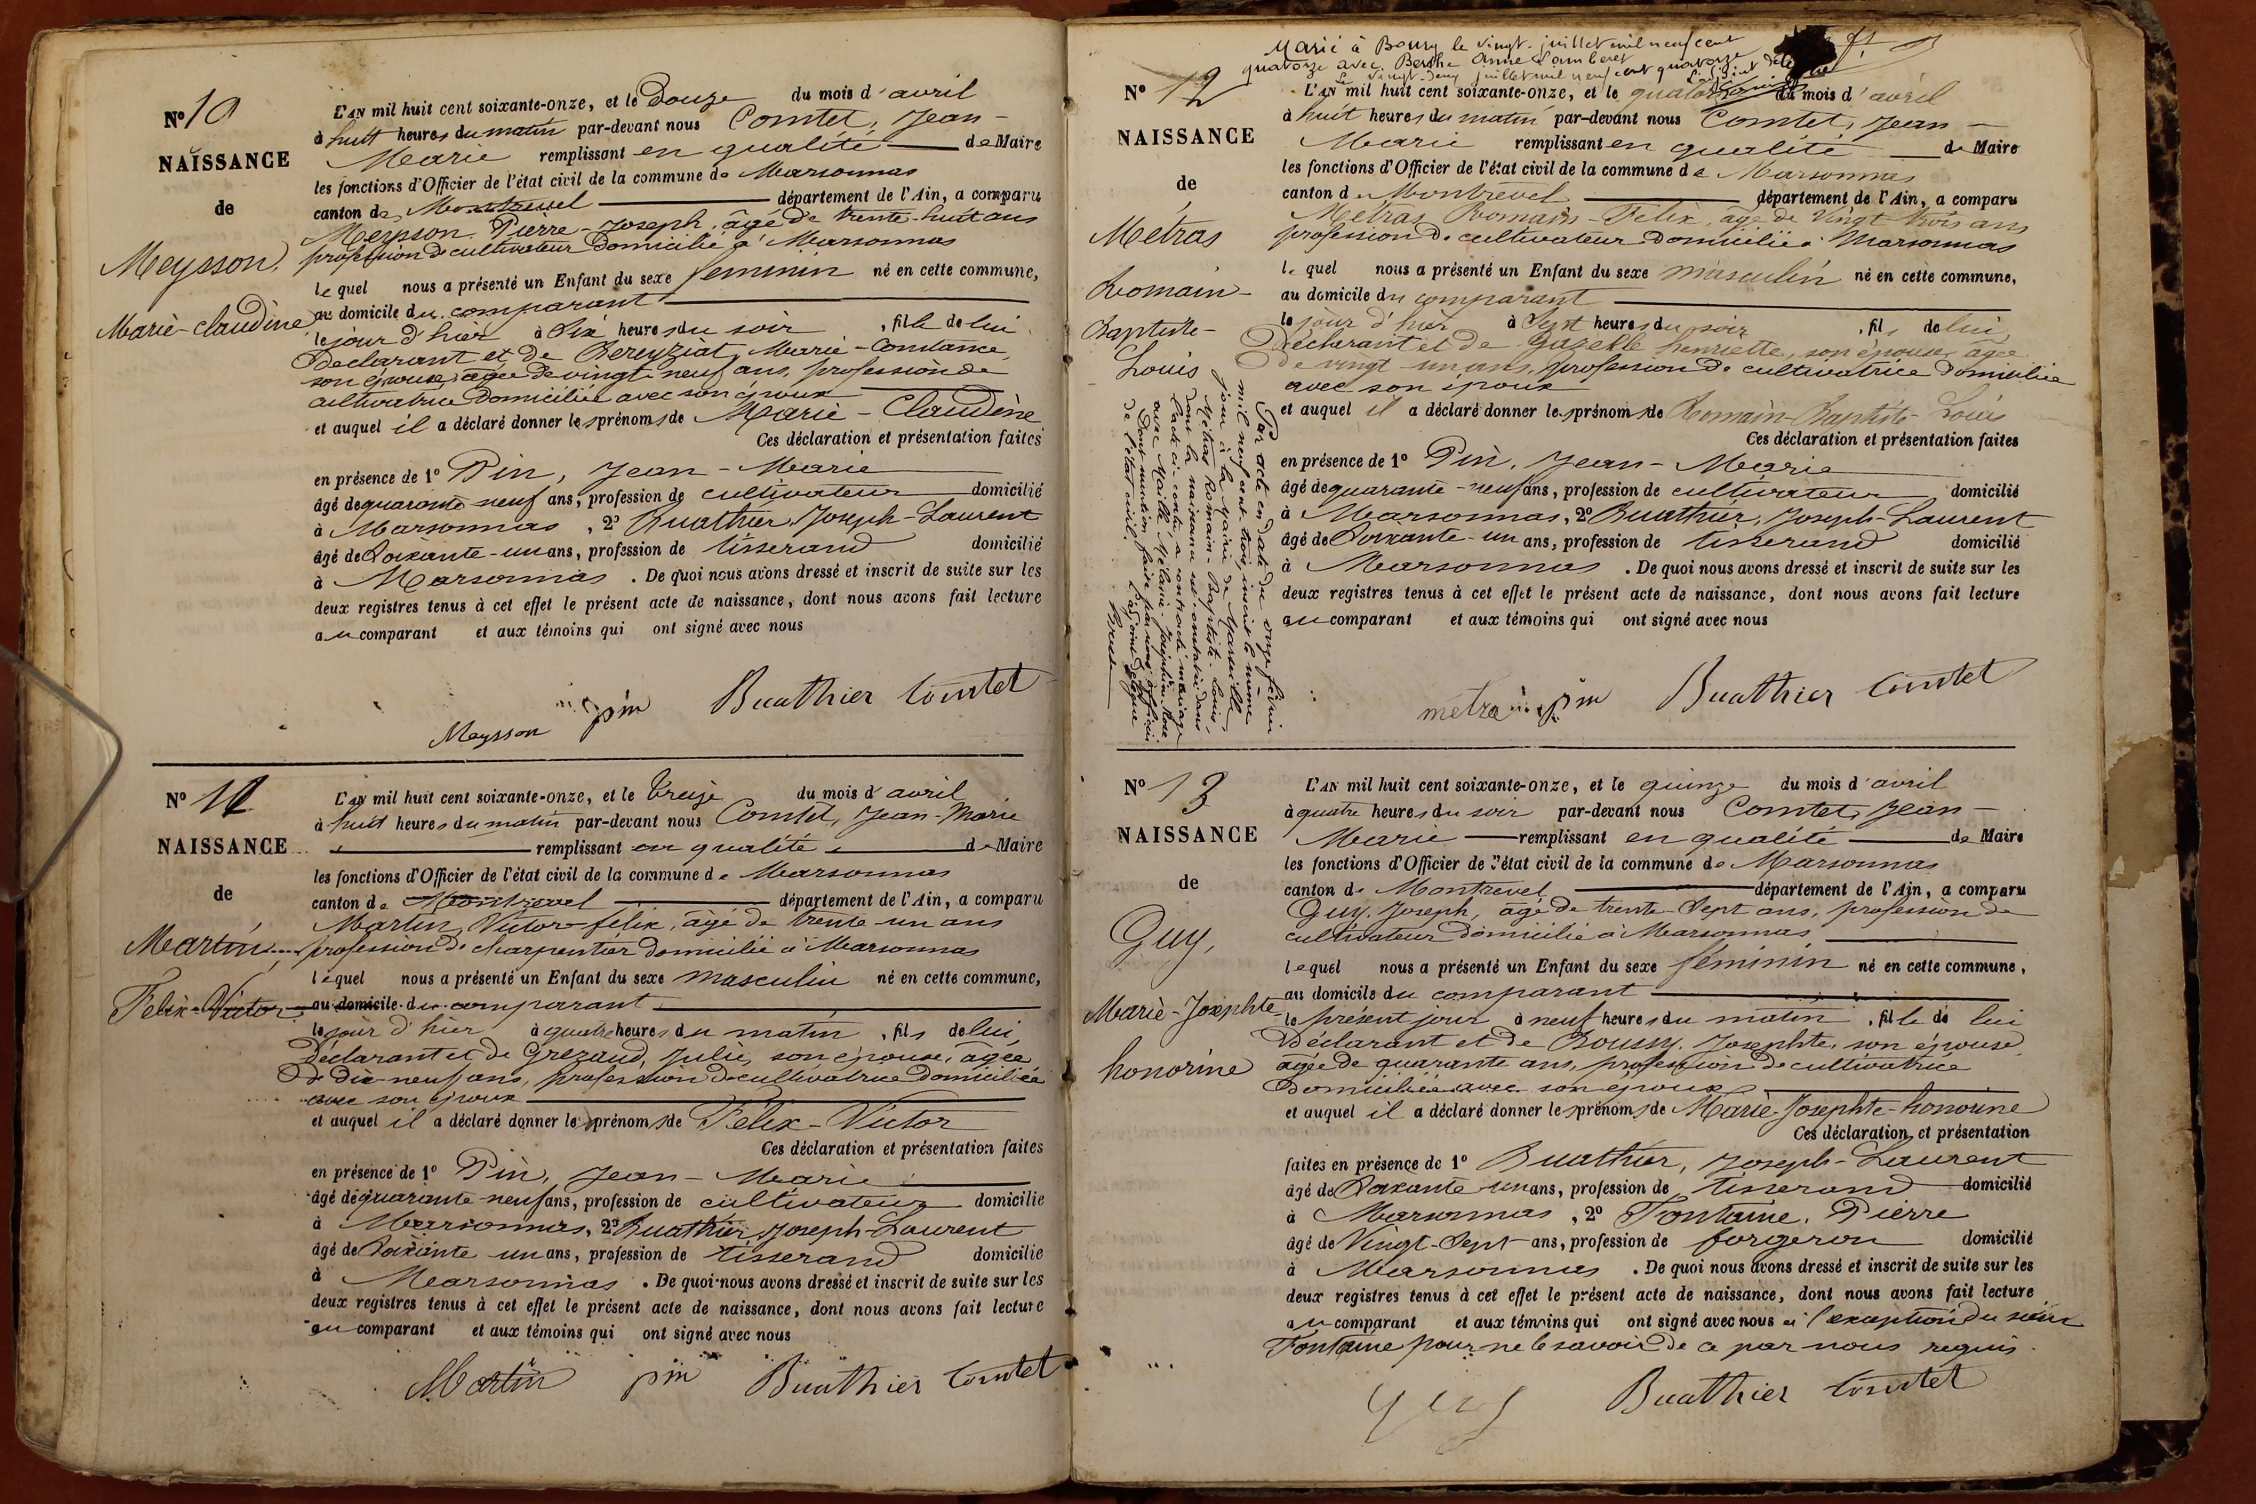 N° 10
NAISSANCE
de
Meysson,
Marie-Claudine
L'AN mil huit cent soixante-onze, et le Douze du mois d'avril
à huit heures du matin par-devant nous Comtet, Jean-
Marie remplissant en qualité de Maire
les fonctions d'Officier de l'état civil de la commune de Marsonnas
canton de Montrevel département de l'Ain, a comparu
Meysson, Pierre-Joseph, âgé de trente-huit ans
profession de cultivateur Domicilié à Marsonnas
lequel nous a présenté un Enfant du sexe féminin né en cette commune,
au domicile du comparant
le jour d'hier à Six heures du soir, fille de lui
Déclarant et de Bereyziat, Marie-Constance,
son épouse, âgée de vingt-neuf ans, profession de
cultivatrice Domiciliée avec son époux
et auquel il a déclaré donner les prénoms de Marie-Claudine
Ces déclaration et présentation faites
en présence de 1° Pin, Jean-Marie
âgé de quarante-neuf ans, profession de cultivateur domicilié
à Marsonnas, 2° Buathier, Joseph-Laurent
âgé de Soixante-un ans, profession de tisserand domicilié
à Marsonnas. De quoi nous avons dressé et inscrit de suite sur les
deux registres tenus à cet effet le présent acte de naissance, dont nous avons fait lecture
au comparant et aux témoins qui ont signé avec nous
Meysson pin Buathier Comtet
N° 11
NAISSANCE
de
Martin,
Félix-Victor
L'AN mil huit cent soixante-onze, et le treize du mois d'avril
à huit heures du matin par-devant nous Comtet, Jean-Marie
remplissant en qualité de Maire
les fonctions d'Officier de l'état civil de la commune de Marsonnas
canton de Montrevel département de l'Ain, a comparu
Martin, Victor-félix, âgé de trente-un ans
profession de charpentier domicilié à Marsonnas
lequel nous a présenté un Enfant du sexe masculin né en cette commune,
au domicile du comparant
le jour d'hier à quatre heures du matin, fils de lui,
Déclarant et de Grezaud, Julie, son épouse, âgée
de dix-neuf ans, profession de cultivatrice domiciliée
avec son époux
et auquel il a déclaré donner les prénoms de Félix-Victor
Ces déclaration et présentation faites
en présence de 1° Pin, Jean-Marie
âgé de quarante-neuf ans, profession de cultivateur domicilié
à Marsonnas, 2° Buathier, Joseph-Laurent
âgé de Soixante-un ans, profession de tisserand domicilié
à Marsonnas. De quoi nous avons dressé et inscrit de suite sur les
deux registres tenus à cet effet le présent acte de naissance, dont nous avons fait lecture
au comparant et aux témoins qui ont signé avec nous
Martin pin Buathier Comtet
Marié à Bourg le vingt juillet mil neuf cent
quatorze avec Berthe Anne Lambert
Le vingt-deux juillet mil neuf cent quatorze
N° 12
NAISSANCE
de
Métras
Romain-
Baptiste-
Louis
L'AN mil huit cent soixante-onze, et le quatorze du mois d'avril
à huit heures du matin par-devant nous Comtet, Jean-
Marie remplissant en qualité de Maire
les fonctions d'Officier de l'état civil de la commune de Marsonnas
canton de Montrevel département de l'Ain, a comparu
Métras Romain-Félix, âgé de vingt trois ans
profession de cultivateur domicilié à Marsonnas
lequel nous a présenté un Enfant du sexe masculin né en cette commune,
au domicile du comparant
le jour d'hier à Sept heures du soir, fils de lui
Déclarant et de Gazelle henriette, son épouse, âgée
de vingt un ans, profession de cultivatrice domiciliée
avec son époux
et auquel il a déclaré donner les prénoms de Romain-Baptiste-Louis
Ces déclaration et présentation faites
en présence de 1° Pin, Jean-Marie
âgé de quarante-neuf ans, profession de cultivateur domicilié
à Marsonnas, 2° Buathier, Joseph-Laurent
âgé de Soixante-un ans, profession de tisserand domicilié
à Marsonnas. De quoi nous avons dressé et inscrit de suite sur les
deux registres tenus à cet effet le présent acte de naissance, dont nous avons fait lecture
au comparant et aux témoins qui ont signé avec nous
metra pin Buathier Comtet
Par acte en date du onze février
mil neuf cent trois, inscrit le même
jour à la Mairie de Marseille,
Métras Romain-Baptiste-Louis,
dont la naissance est constatée dans
l'acte ci-contre, a contracté mariage
avec Maille Mélanie Joséphine Rose
Dont mention faite par nous officier
de l'état civil. L'adjoint délégué
N° 13
NAISSANCE
de
Guy,
Marie-Josephte-
honorine
L'AN mil huit cent soixante-onze, et le quinze du mois d'avril
à quatre heures du soir par-devant nous Comtet, Jean-
Marie remplissant en qualité de Maire
les fonctions d'Officier de l'état civil de la commune de Marsonnas
canton de Montrevel département de l'Ain, a comparu
Guy, Joseph, âgé de trente-Sept ans, profession de
cultivateur domicilié à Marsonnas
lequel nous a présenté un Enfant du sexe féminin né en cette commune,
au domicile du comparant
le présent jour à neuf heures du matin, fille de lui
Déclarant et de Roussy, Josephte, son épouse,
âgée de quarante ans, profession de cultivatrice
domiciliée avec son époux
et auquel il a déclaré donner les prénoms de Marie-Josephte-honorine
Ces déclaration et présentation
faites en présence de 1° Buathier, Joseph-Laurent
âgé de Soixante-un ans, profession de tisserand domicilié
à Marsonnas, 2° Fontaine, Pierre
âgé de Vingt-Sept ans, profession de forgeron domicilié
à Marsonnas. De quoi nous avons dressé et inscrit de suite sur les
deux registres tenus à cet effet le présent acte de naissance, dont nous avons fait lecture
au comparant et aux témoins qui ont signé avec nous à l'exception du sieur
Fontaine pour ne le savoir de ce par nous requis.
Guy Buathier Comtet